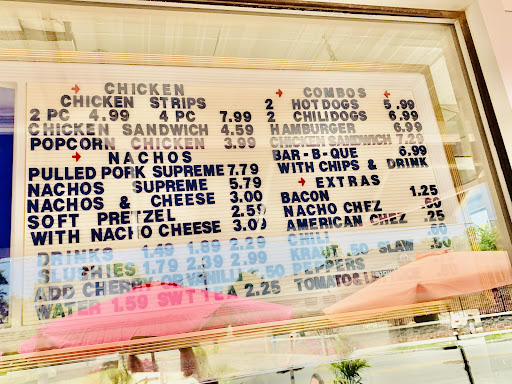 CHICKEN
CHICKEN STRIPS
2 PC 4.99 4 PC 7.99
CHICKEN SANDWICH 4.59
POPCORN CHICKEN 3.99
NACHOS
PULLED PORK SUPREME 7.79
NACHOS SUPREME 5.79
NACHOS & CHEESE 3.00
SOFT PRETZEL 2.59
WITH NACHO CHEESE 3.09
DRINKS 1.49 1.89 2.29
SLUSHIES 1.79 2.39 2.99
ADD CHERRY OR VANILLA .50
WATER 1.59 SWT TEA 2.25
COMBOS
2 HOTDOGS 5.99
2 CHILIDOGS 6.99
HAMBURGER 6.99
CHICKEN SANDWICH 7.29
BAR-B-QUE 6.99
WITH CHIPS & DRINK
EXTRAS
BACON 1.25
NACHO CHEZ .60
AMERICAN CHEZ .25
CHILI .60
KRAUT .50 SLAW .50
PEPPERS
TOMATO